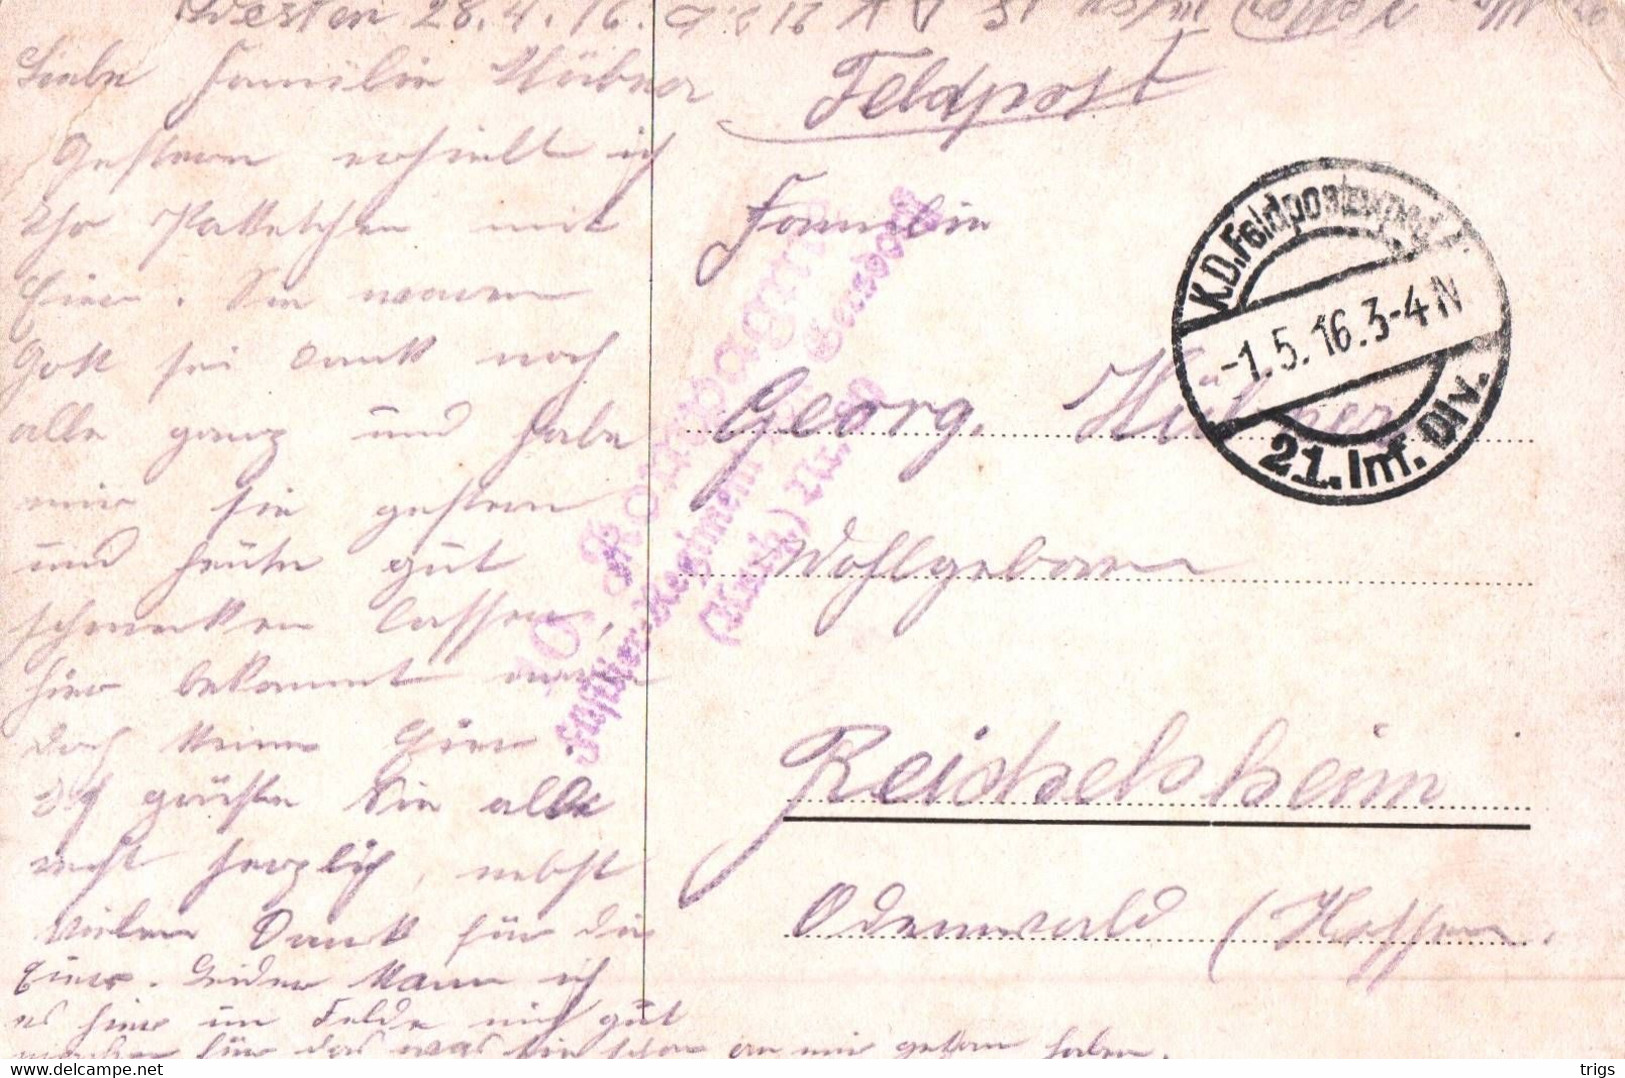 Westen 28.4.16.
Liebe Familie Hübner
Gestern erhielt ich
Ihr Packetchen mit
Eier. Sie waren
Gott sei Dank noch
alle ganz und habe
mir sie gestern
und heute gut
schmecken lassen,
hier bekommt man
doch keine Eier.
Ich grüße Sie alle
recht herzlich, nebst
vielen Dank für die
Eier. Leider kann ich
es hier im Felde nicht gut
machen für das was Sie schon an mir getan haben.
Feldpost
Familie
Georg. Hübner
Wohlgeboren
Reichelsheim
Odenwald (Hessen.
K.D. Feldpostexped.
-1.5.16.3-4N
21. Inf. Div.
10. Kompagnie
Füsilier-Regiment Gersdorff
(Kurh.) Nr. 80
delcampe.net
trigs